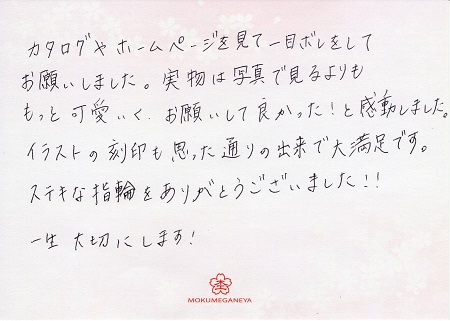 カタログやホームページを見て一目ボレをして
お願いしました。実物は写真で見るよりも
もっと可愛いく、お願いして良かった！と感動しました。
イラストの刻印も思った通りの出来で大満足です。
ステキな指輪をありがとうございました!!
一生大切にします!
MOKUMEGANEYA